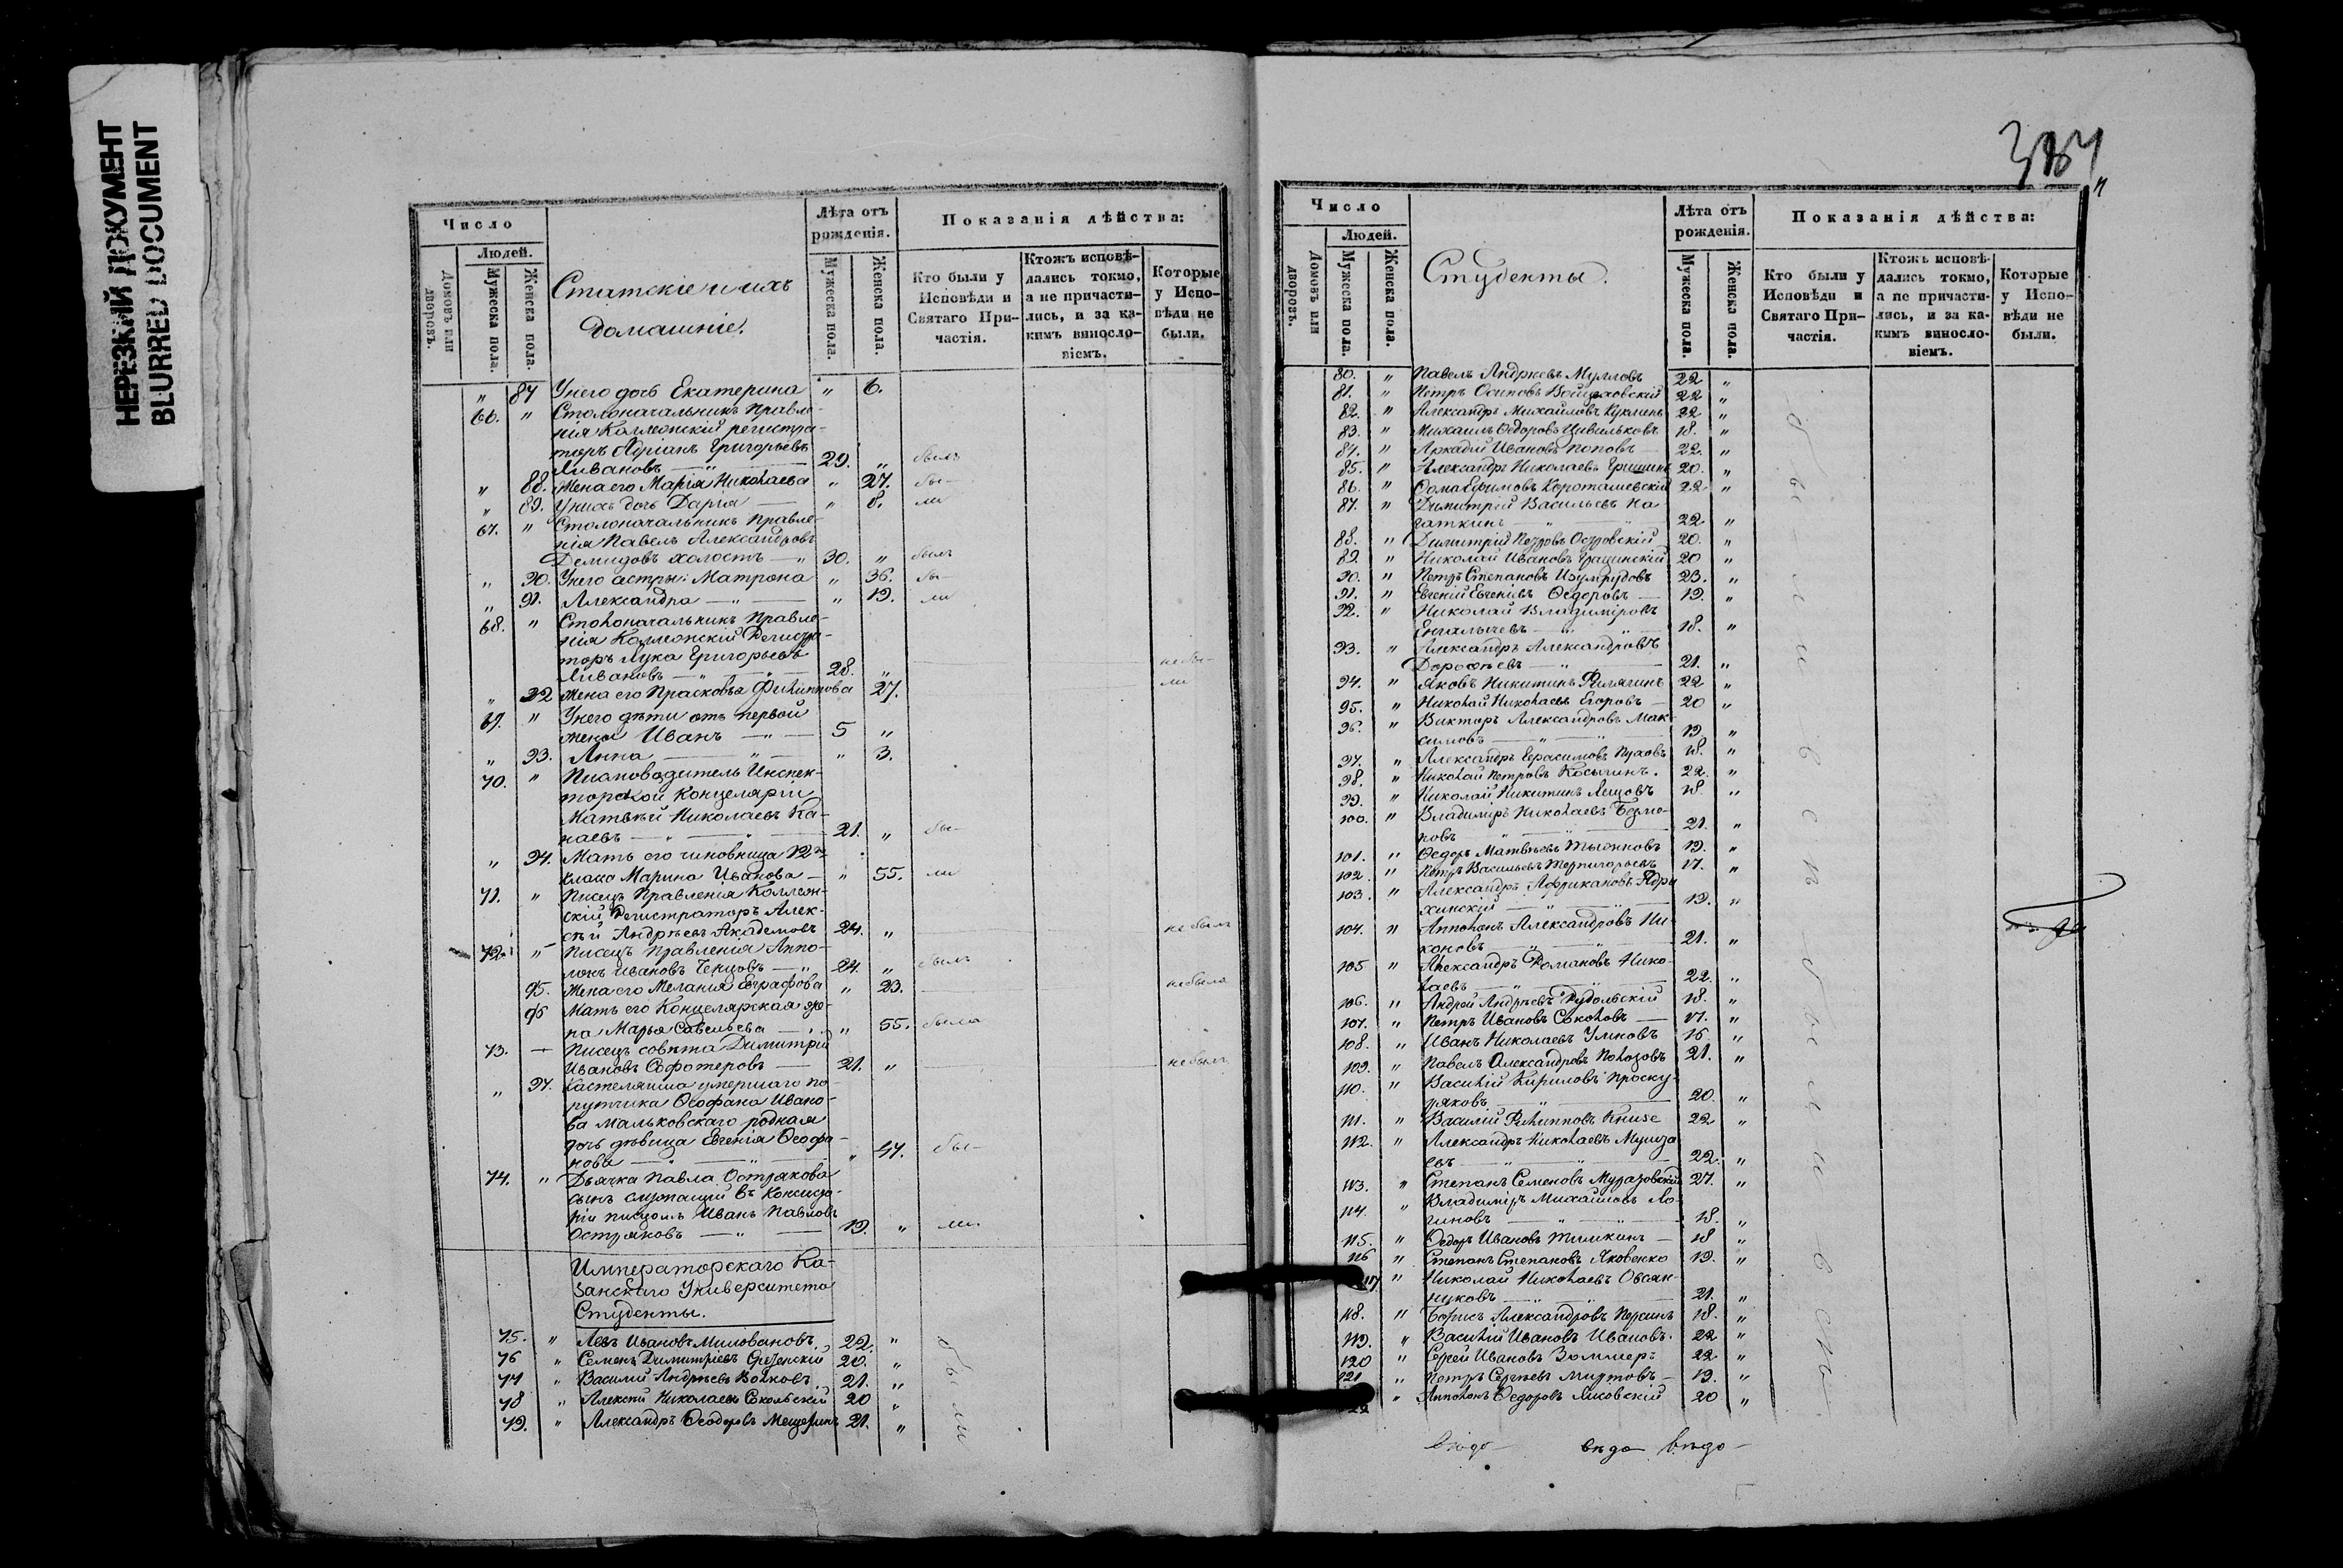 НЕРЕЗКИЙ ДОКУМЕНТ
BLURRED DOCUMENT
Число
Людей.
Домовъ или дворовъ.
Мужеска пола.
Женска пола.
Статскіе и ихъ
домашніе.
Лѣта отъ рожденія.
Мужеска пола.
Женска пола.
Показанія дѣйства:
Кто были у Исповѣди и Святаго Причастія.
Ктожъ исповѣдались токмо, а не причастились, и за какимъ винословіемъ.
Которые у Исповѣди не были.
" 87 У него дочь Екатерина " 6.
66. " Столоначальникъ Правле-
нія Коллежскій регистра-
торъ Адріанъ Григорьевъ
Ливановъ — " — 29. " былъ
" 88. Жена его Марія Николаева " 27. бы-
" 89. У нихъ дочь Дарія — " 8. ли
67. " Столоначальникъ Правле-
нія Павелъ Александровъ
Демидовъ холостъ — " 30. " былъ
" 90. У него сестры: Матрона " 36. бы-
" 91. Александра — " — " 19. ли
68. " Столоначальникъ Правле-
нія Коллежскій Регистра-
торъ Лука Григорьевъ
Ливановъ — " — " — 28. " не бы-
" 92 Жена его Прасковья Филиппова 27. ли
69. " У него дѣти отъ первой
жены Иванъ — " — 5 "
" 93. Анна — " — " 3.
70. " Письмоводитель Инспек-
торской Концеляріи
Матвѣй Николаевъ Ка-
наевъ — " — " — 21. " бы-
" 94. Мать его чиновница 12го
класа Марина Иванова — " 55. ли
71. " Писецъ Правленія Коллеж-
скій Регистраторъ Алек-
сѣй Андреевъ Академовъ 24. " не былъ
72. " Писецъ Правленія Аппо-
лонъ Ивановъ Ченцовъ — " 24. " былъ
95. Жена его Меланія Евграфова " 23. не была
96 Мать его Концелярская же-
на Марья Савельева — " " 55. была
73. — Писецъ совѣта Димитрій
Ивановъ Софотеровъ — 21. " не былъ
" 97. Кастелянша умершаго по-
ручика Ѳеофана Ивано-
ва Мальковскаго родная
дочь дѣвица Евгенія Ѳеофа-
нова — " — " — " 47. бы-
74. " Дьячка Павла Острякова
сынъ служащій въ Консисто-
ріи писцомъ Иванъ Павловъ
Остряковъ — " — 19. " ли.
Императорскаго Ка-
занскаго Университета
Студенты.
75. " Левъ Ивановъ Миловановъ 22. "
76 " Семенъ Димитріевъ Срезенскій 20. "
77 " Василій Андреевъ Волковъ 21. "
78 " Алексѣй Николаевъ Сокольскій 20 "
79. " Александръ Ѳеодоровъ Мещеринъ 21. "
были
Число
Людей.
Домовъ или дворовъ.
Мужеска пола.
Женска пола.
Студенты.
Лѣта отъ рожденія.
Мужеска пола.
Женска пола.
Показанія дѣйства:
Кто были у Исповѣди и Святаго Причастія.
Ктожъ исповѣдались токмо, а не причастились, и за какимъ винословіемъ.
Которые у Исповѣди не были.
80. " Павелъ Андреевъ Мулловъ 22 "
81. " Петръ Осиповъ Войцеховскій 22 "
82. " Александръ Михайловъ Куклинъ 22 "
83. " Михаилъ Ѳедоровъ Цивильковъ 18. "
84. " Аркадій Ивановъ Поповъ 22. "
85. " Александръ Николаевъ Гришинъ 20. "
86. " Ѳома Ефимовъ Короташевскій 22 "
87. " Димитрій Васильевъ Ка-
гаткинъ — " — 22. "
88. " Димитрій Петровъ Островскій 20. "
89. " Николай Ивановъ Грацинскій 20 "
90. " Петръ Степановъ Изумрудовъ 23. "
91. " Евгеній Евгеніевъ Ѳедоровъ — 19. "
92. " Николай Владиміровъ
Енгалычевъ — " — " 18. "
93. " Александръ Александровъ
Дорофеевъ — " — 21. "
94. " Яковъ Никитинъ Филягинъ 22 "
95. " Николай Николаевъ Егоровъ — 20 "
96. " Викторъ Александровъ Мак-
симовъ — " — " — 19 "
97. " Александръ Герасимовъ Пуховъ 18. "
98. " Николай Петровъ Косыгинъ. 22. "
99. " Николай Никитинъ Лещовъ 18 "
100. " Владиміръ Николаевъ Безме-
новъ " — " — 21. "
101. " Ѳедоръ Матвѣевъ Тыжновъ 19. "
102. " Петръ Васильевъ Терпигорьевъ 17. "
103 " Александръ Африкановъ Ядри
хинскій — " — 19. "
104. " Апполонъ Александровъ Ни-
коновъ — " — 21. "
105 " Александръ Романовъ Нико-
лаевъ — " — 22. "
106. " Андрей Андреевъ Рудольскій 18. "
107. " Петръ Ивановъ Соколовъ — 17. "
108. " Иванъ Николаевъ Умновъ 16 "
109. " Павелъ Александровъ Полозовъ 21. "
110. " Василій Кириловъ Проску-
ряковъ — " — 20. "
111. " Василій Филипповъ Книзе 22 "
112. " Александръ Николаевъ Мунза
евъ — " — 22. "
113. " Степанъ Семеновъ Муратовскій 27. "
114. " Владиміръ Михайловъ Ло-
гиновъ — " — 18. "
115. " Ѳедоръ Ивановъ Тимкинъ — 18 "
116 " Степанъ Степановъ Яковенко 19. "
117 " Николай Николаевъ Овсян-
никовъ — " — 21. "
118. " Борисъ Александровъ Перцинъ 18. "
119. " Василій Ивановъ Ивановъ. 22 "
120 " Сергѣй Ивановъ Зоммеръ 22 "
121 " Петръ Сергѣевъ Миртовъ — 19. "
22 " Апполонъ Ѳедоровъ Лисовскій 20 "